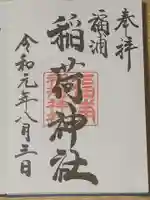 奉拝
福浦
稲荷神社
令和元年八月三日